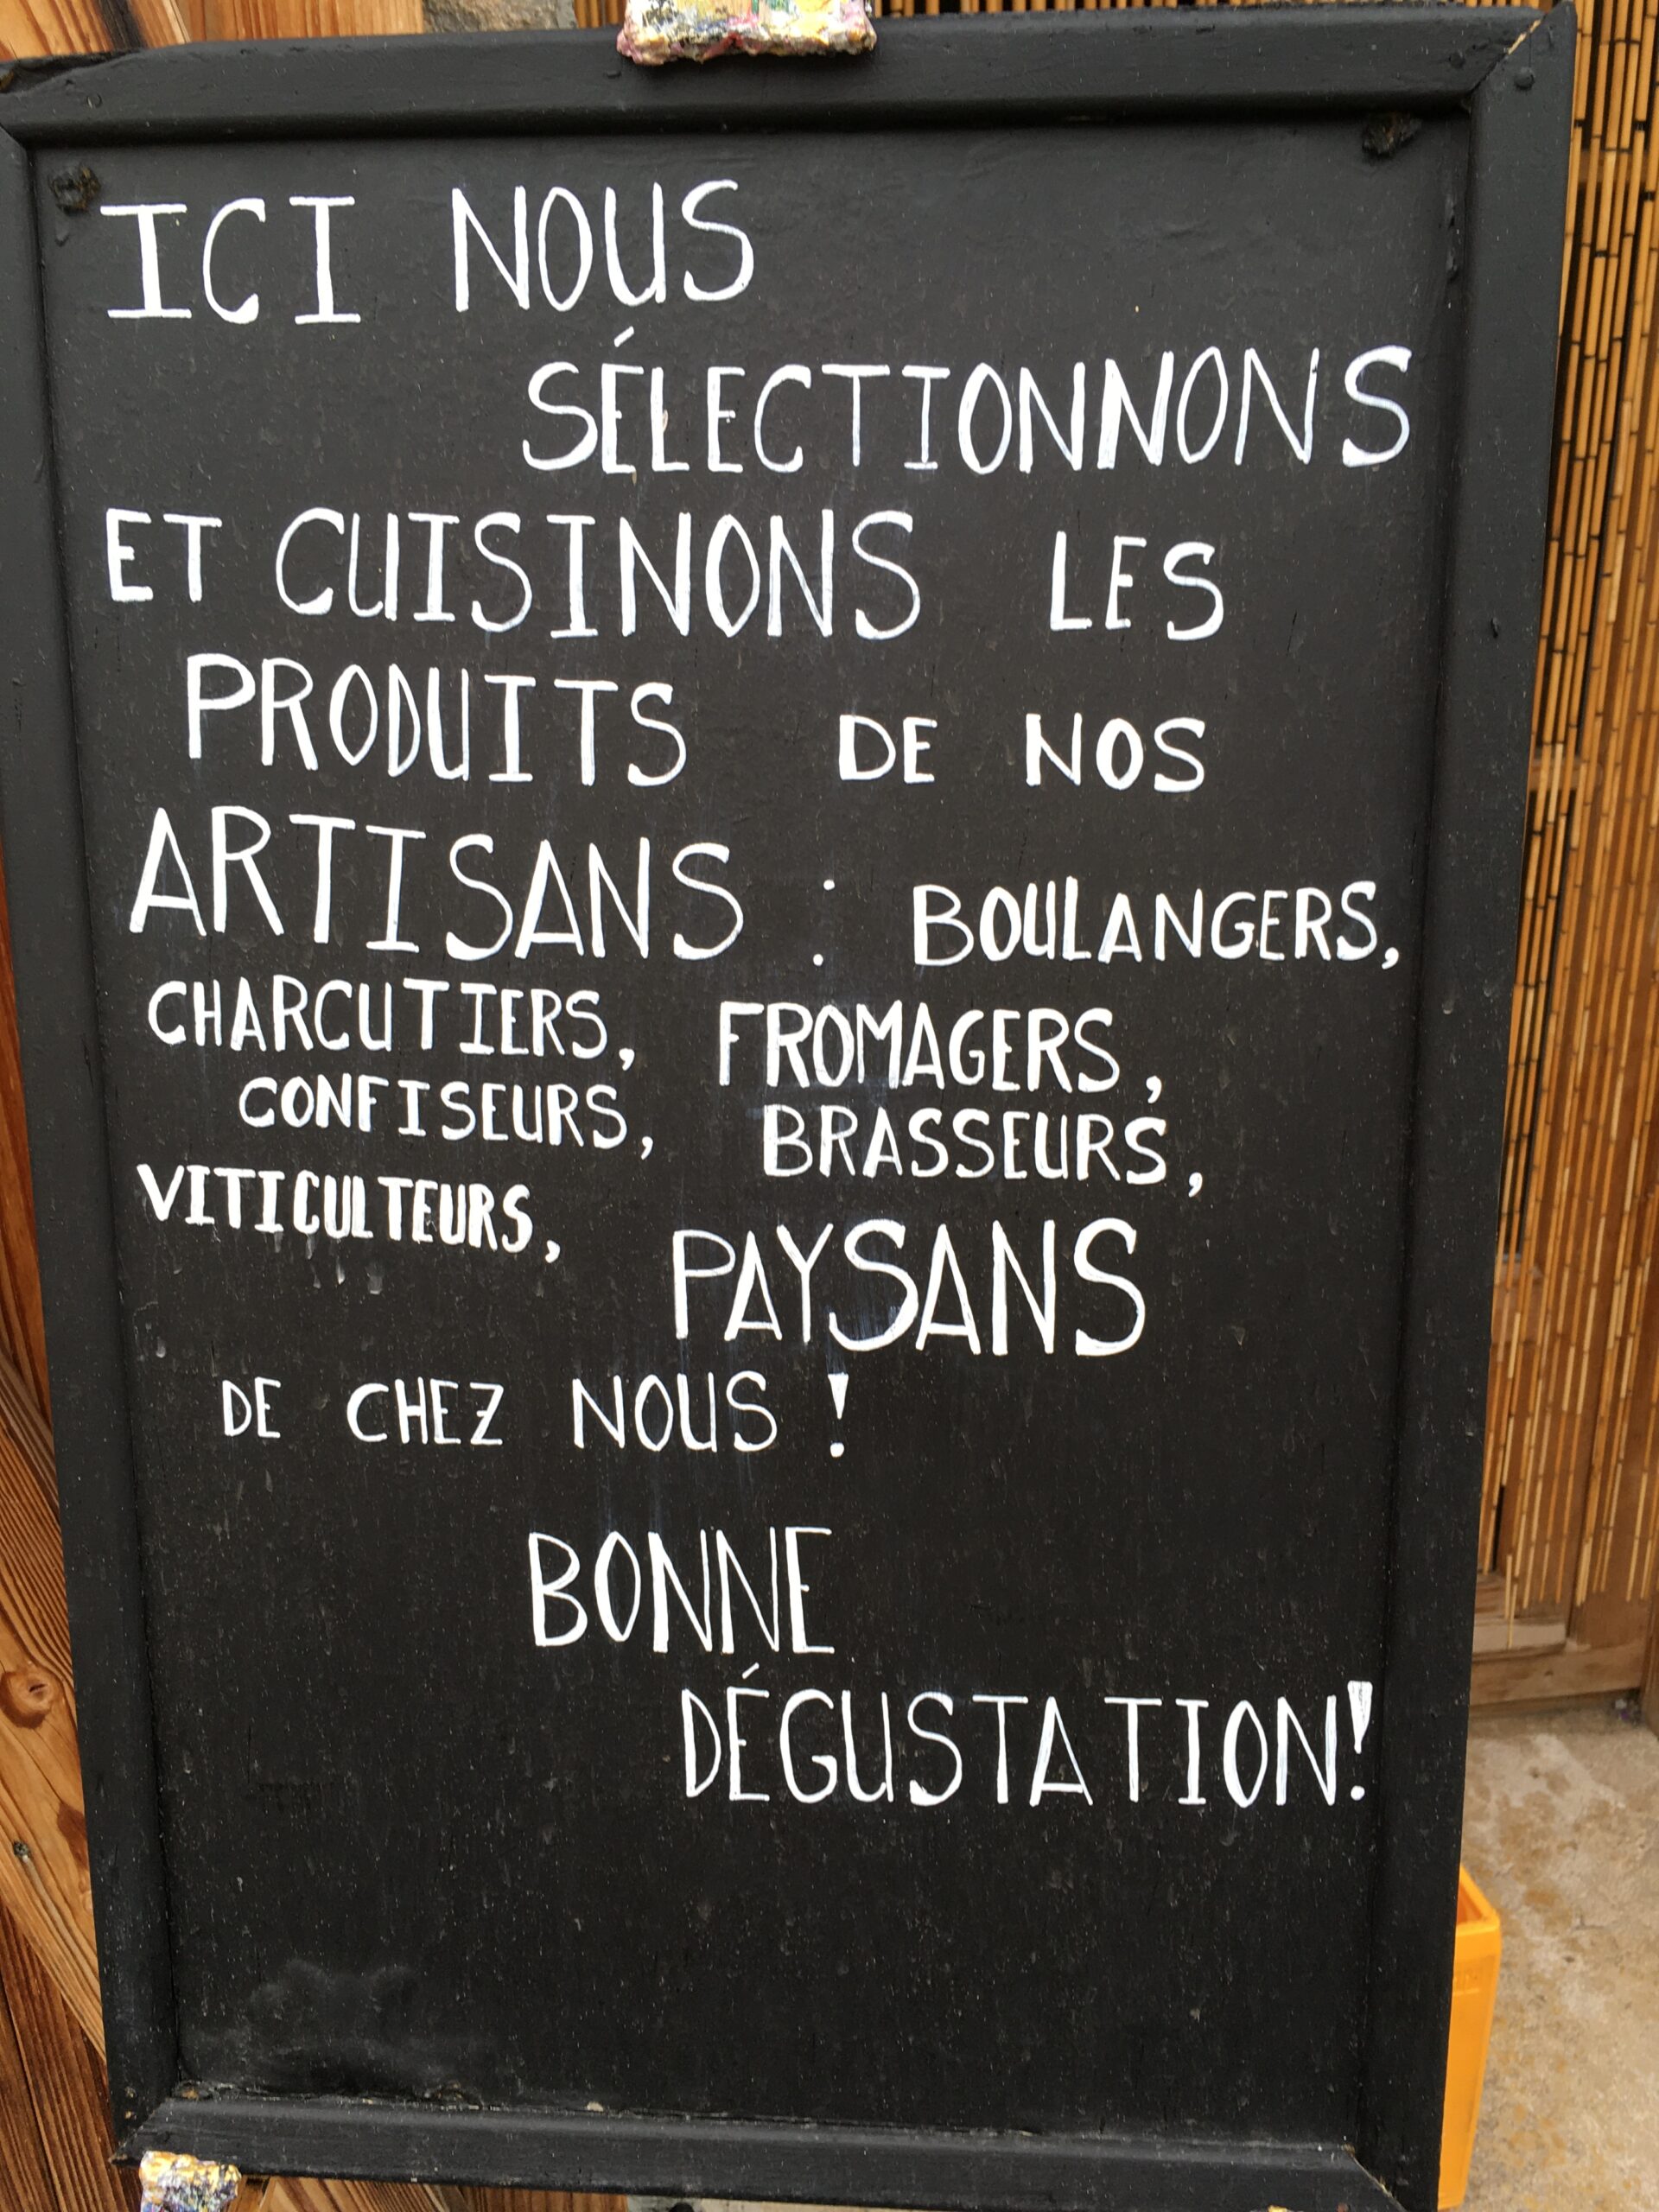 ICI NOUS
SÉLECTIONNONS
ET CUISINONS LES
PRODUITS DE NOS
ARTISANS : BOULANGERS,
CHARCUTIERS, FROMAGERS,
CONFISEURS, BRASSEURS,
VITICULTEURS, PAYSANS
DE CHEZ NOUS !
BONNE
DÉGUSTATION!